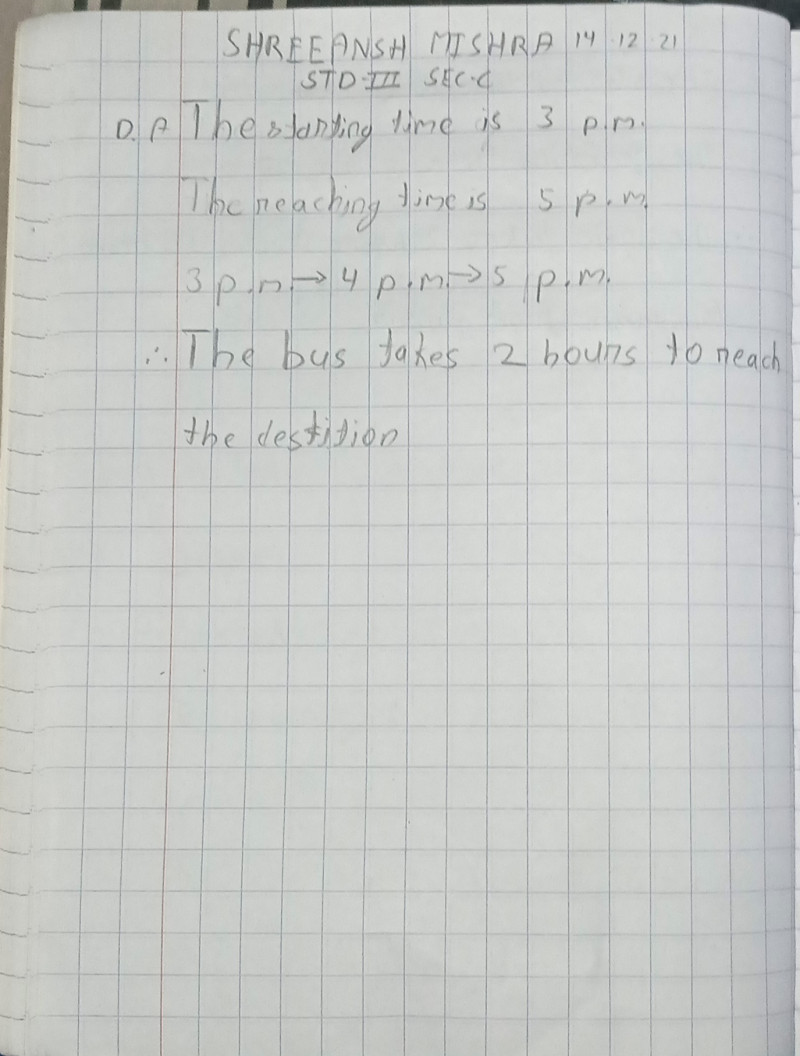 SHREEANSH MISHRA 14.12.21
STD-III SEC-C
D. A The starting time is 3 p.m.
The reaching time is 5 p.m.
3 p.m → 4 p.m. → 5 p.m.
∴ The bus takes 2 hours to reach
the destition